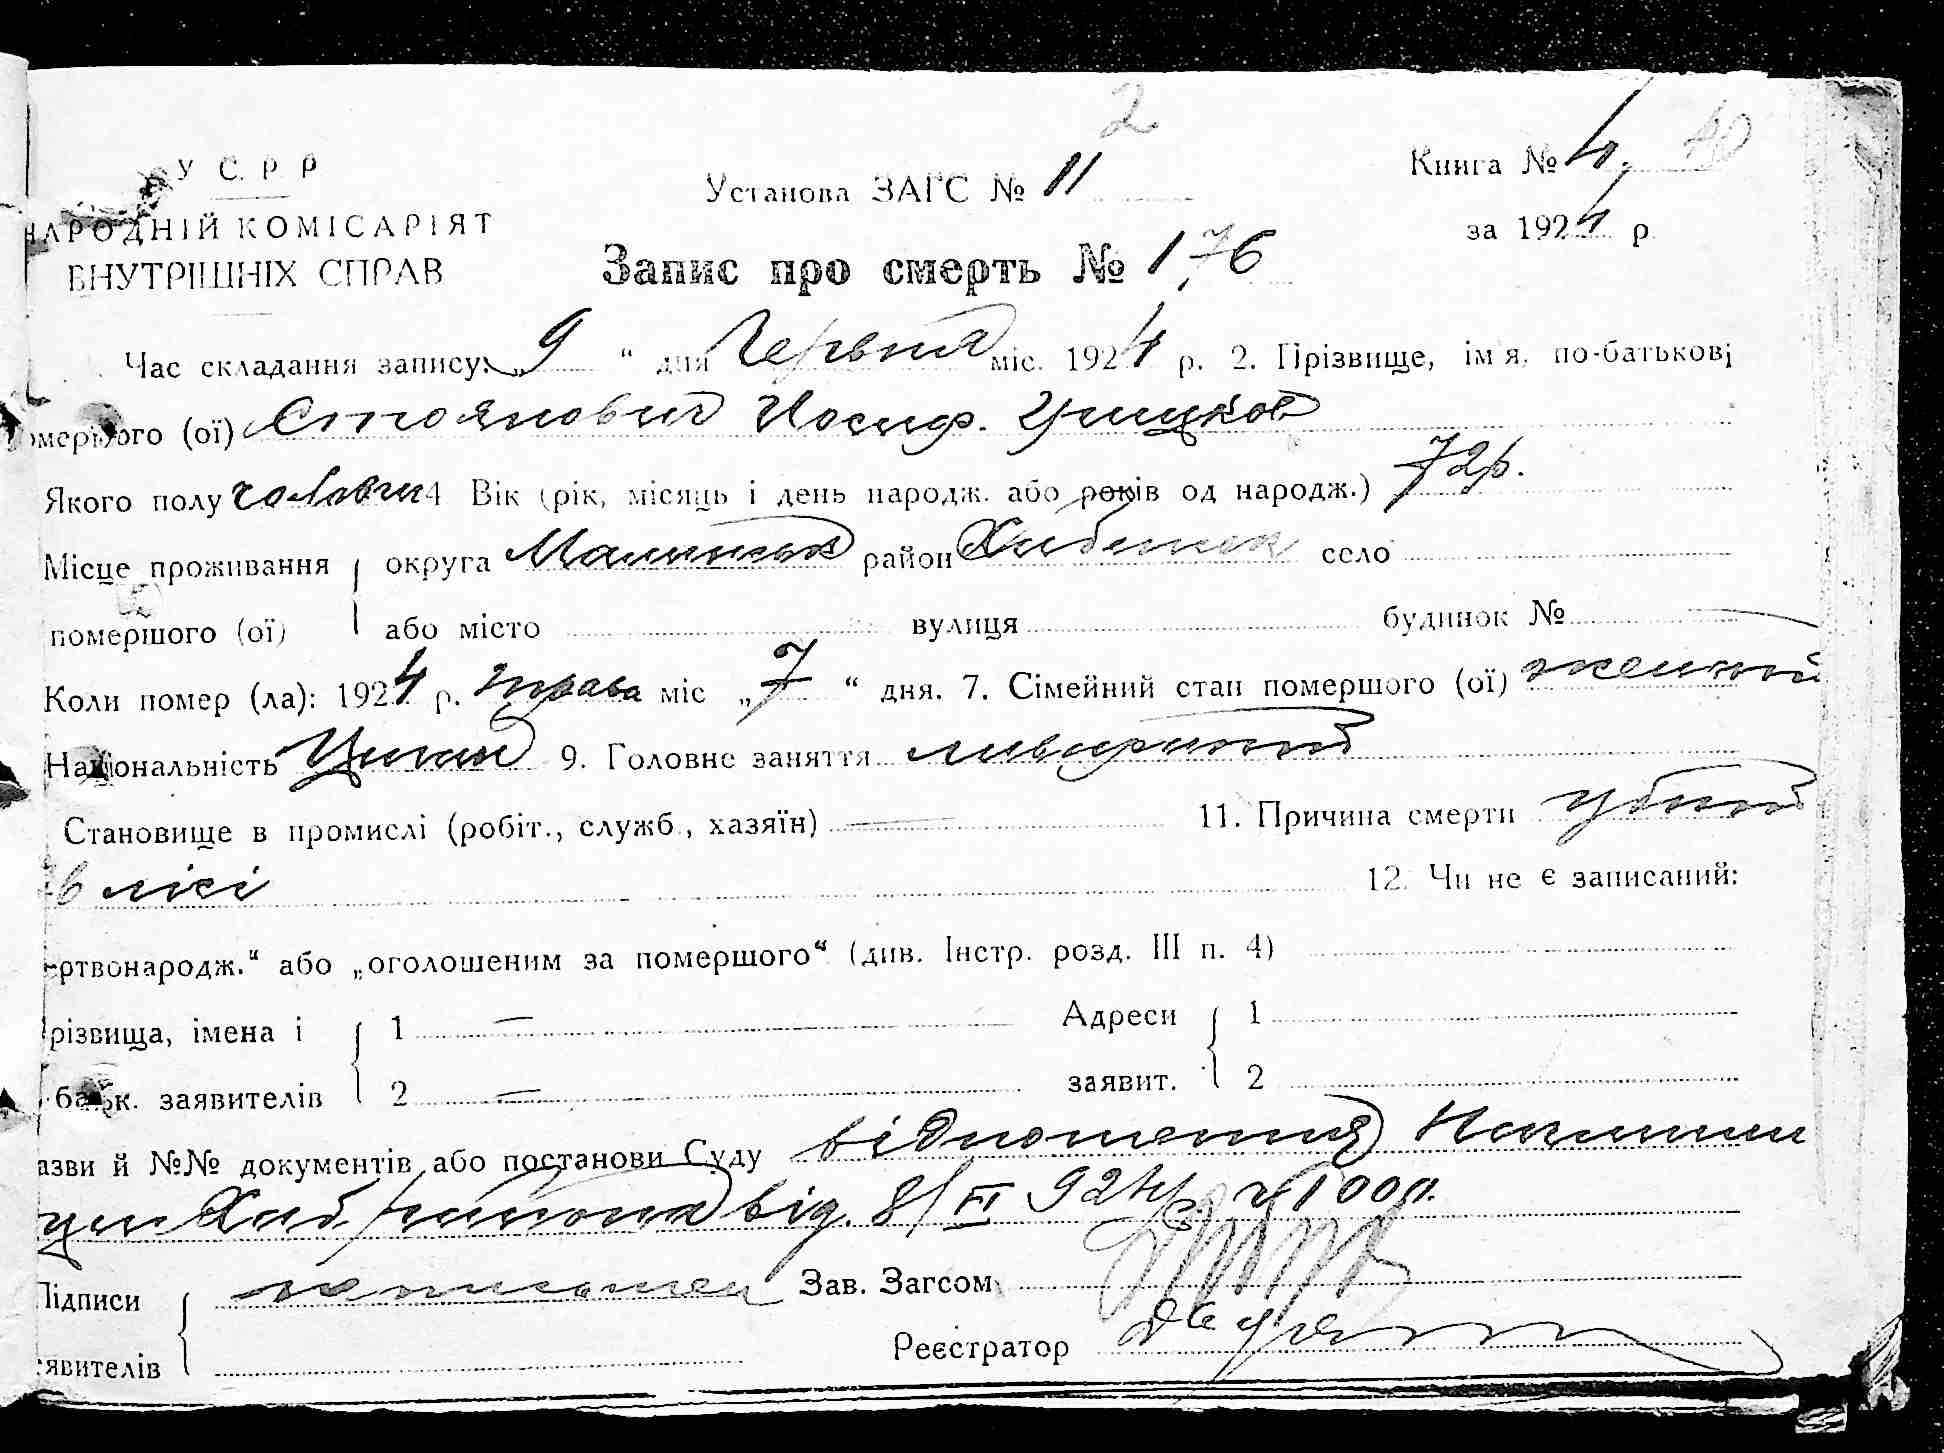 2
У С. Р Р
Установа ЗАГС № 11
Книга № 4. 40
НАРОДНІЙ КОМІСАРІЯТ
за 1924 р
ВНУТРІШНІХ СПРАВ
Запис про смерть № 176
Час складання запису: „9 “ дня Червня міс. 1924 р. 2. Прізвище, ім'я, по-батькові
омершого (ої) Стоянович Иосиф.
Якого полу чоловіч 4 Вік (рік, місяць і день народж. або років од народж.) 72р.
Місце проживання округа район село
помершого (ої) або місто вулиця будинок №
Коли помер (ла): 1924 р. міс „7 “ дня. 7. Сімейний стан помершого (ої)
Національність Циган 9. Головне заняття
Становище в промислі (робіт., служб., хазяїн) — 11. Причина смерти убит
в лісі 12. Чи не є записаний:
ертвонародж.“ або „оголошеним за помершого“ (див. Інстр. розд. III п. 4)
різвища, імена і 1 — Адреси 1
батьк. заявителів 2 — заявит. 2
азви й №№ документів або постанови Суду відношення
від. 8/VI 924р.
Підписи Зав. Загсом
Реєстратор
явителів